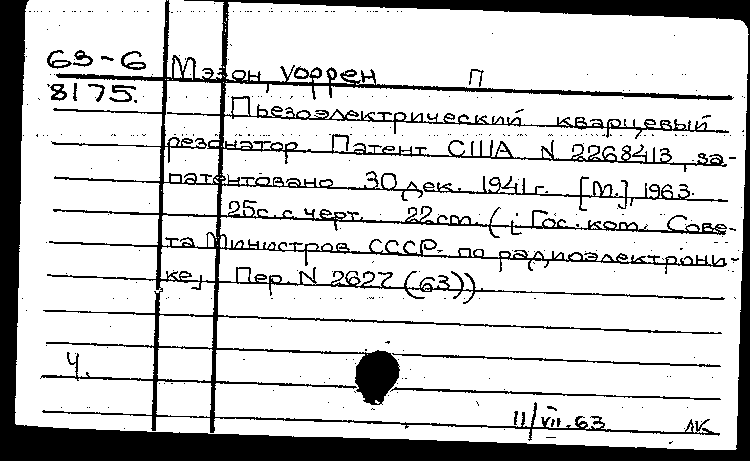 63-6 Мэзон, Уоррен П
8175.
Пьезоэлектрический кварцевый
резонатор. Патент США N 2268413, за-
патентовано 30 дек. 1941 г. [М.], 1963.
25 с. с черт. 22 см. ([Гос. ком. Сове-
та Министров СССР по радиоэлектрони-
ке] Пер. N 2627 (63)).
Ч.
11/VII.63 ЛК